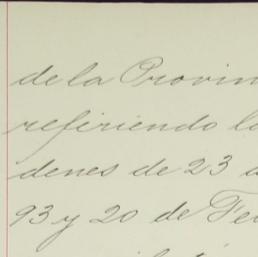 de la Provin
refiriendo l
denes de 23 d
93 y 20 de Fe